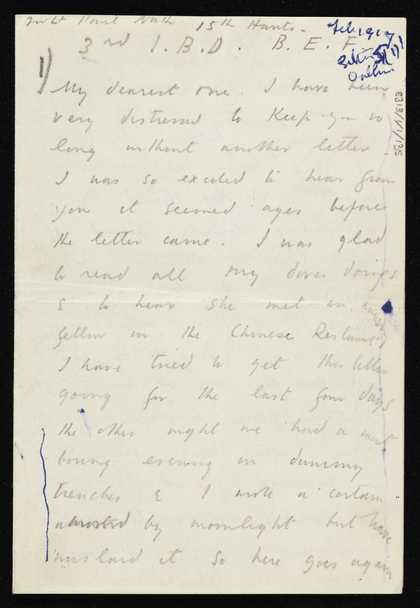 2nd Lt Paul Nash 15th Hants.
3rd I. B. D. B. E. F.
Feb 1917
1)
My dearest one. I have been
very distressed to keep you so
long without another letter.
I was so excited to hear from
you it seemed ages before
the letter came. I was glad
to read all my doves doings
& to hear she met an
fellow in the Chinese Restaurant
I have tried to get this letter
going for the last few days
the other night we had a most
boring evening in dummy
trenches & I wrote a certain
amount by moonlight but have
mislaid it so here goes again